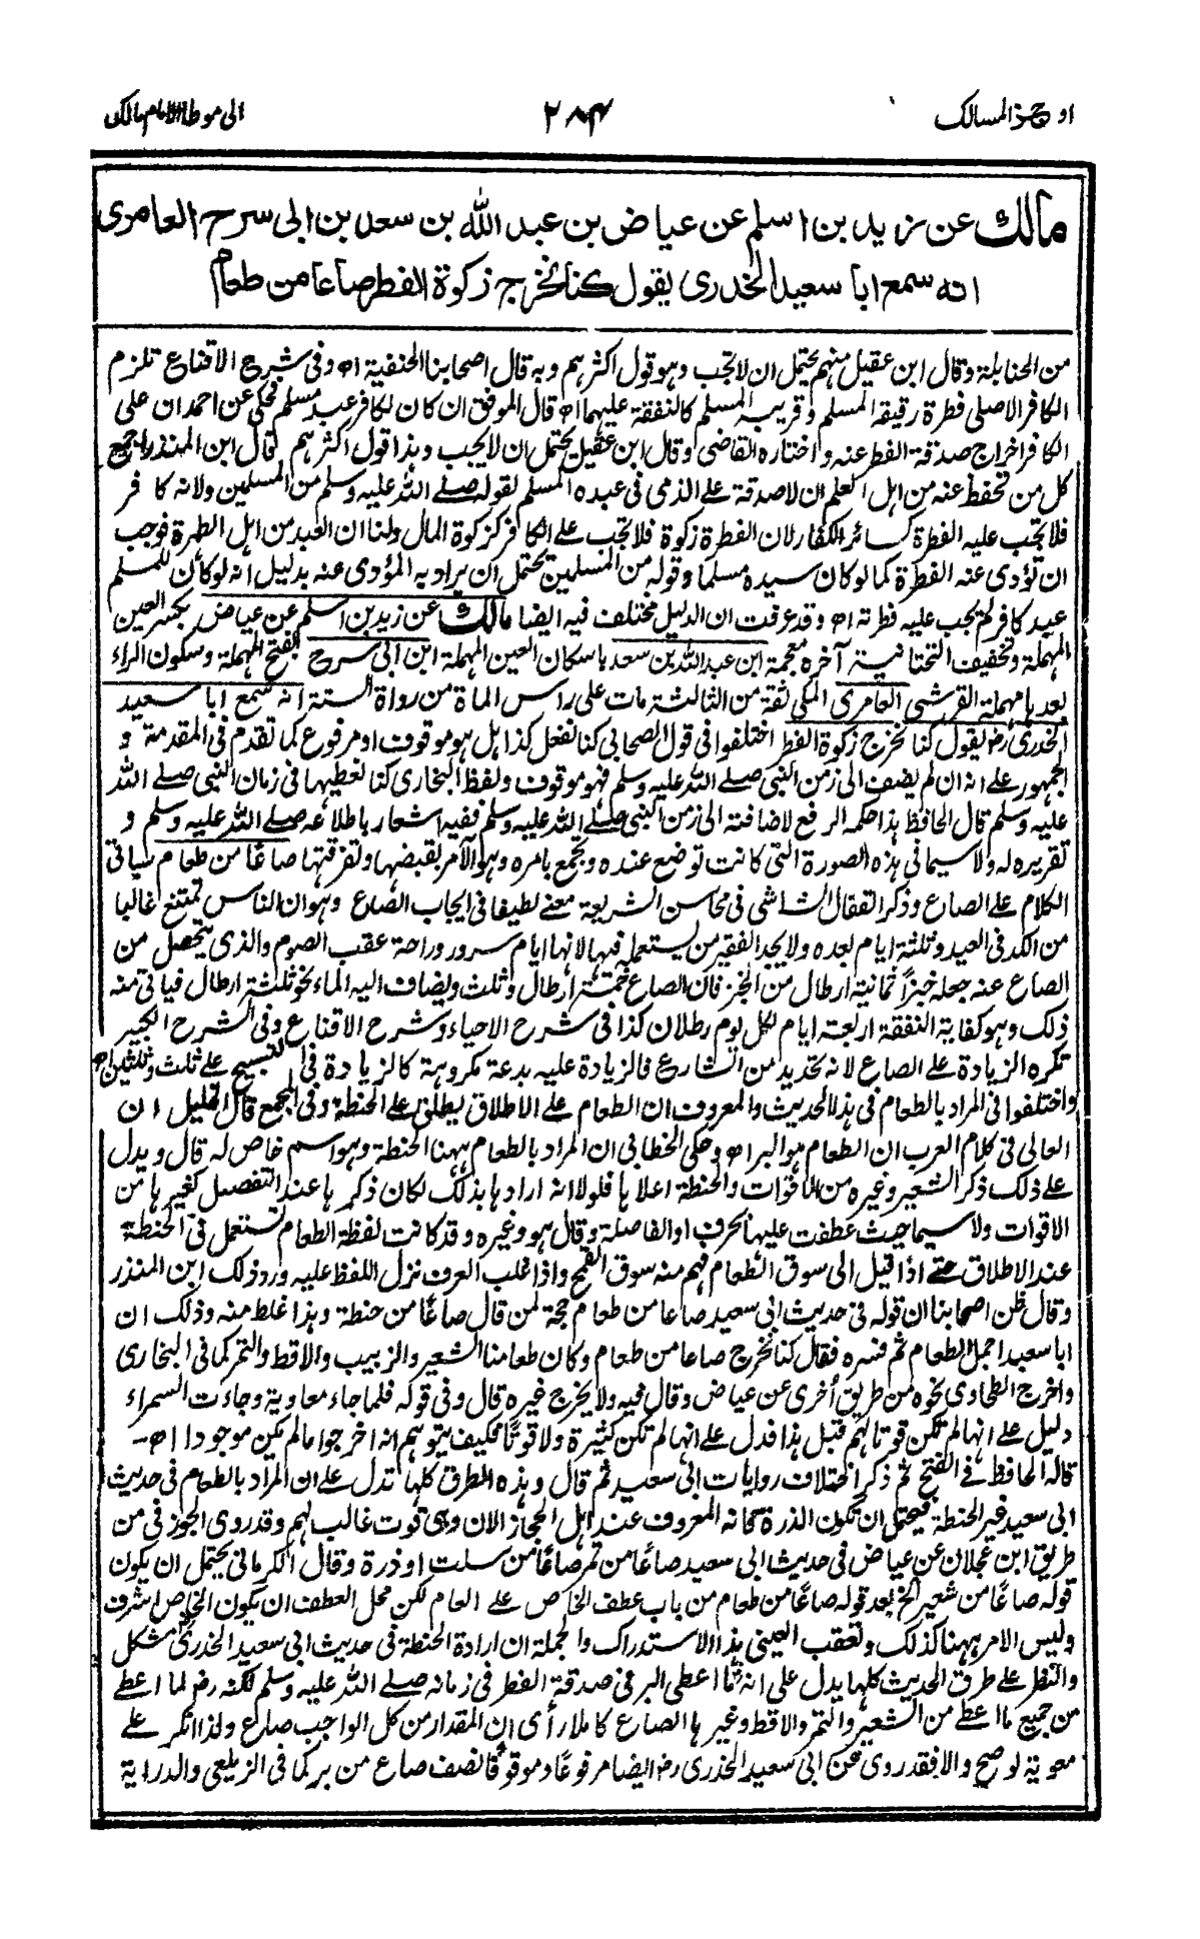 اوجز المسالك ٢٨٤ الى موطا الامام مالك
مالك عن زيد بن اسلم عن عياض بن عبد الله بن سعد بن ابى سرح العامرى
انه سمع ابا سعيد الخدرى يقول كنا نخرج زكوة الفطر صاعا من طعام
من الحنابلة وقال ابن عقيل منهم يحتمل ان لا تجب وهو قول اكثرهم وبه قال اصحابنا الحنفية اه وفى شرح الاقناع تلزم
الكافر الاصلى فطرة رقيقه المسلم وقريبه المسلم كالنفقة عليهما اه قال الموفق ان كان لكافر عبد مسلم فحكى عن احمد ان على
الكافر اخراج صدقة الفطر عنه واختاره القاضى وقال ابن عقيل يحتمل ان لا يجب وهذا قول اكثرهم قال ابن المنذر اجمع
كل من نحفظ عنه من اهل العلم ان لا صدقة على الذمى فى عبده المسلم لقوله صلى الله عليه وسلم من المسلمين ولانه كافر
فلا تجب عليه الفطرة كسائر الكفار لان الفطرة زكوة فلا تجب على الكافر كزكوة المال ولنا ان العبد من اهل الطهرة فوجب
ان تؤدى عنه الفطرة كما لو كان سيده مسلما وقوله من المسلمين يحتمل ان يراد به المؤدى عنه بدليل انه لو كان للمسلم
عبد كافر لم يجب عليه فطرته اه وقد عرفت ان الدليل مختلف فيه ايضا مالك عن زيد بن اسلم عن عياض بكسر العين
المهملة وتخفيف التحتانية آخره معجمة ابن عبد الله بن سعد باسكان العين المهملة ابن ابى سرح بفتح المهملة وسكون الراء
بعدها مهملة القرشى العامرى المكى ثقة من الثالثة مات على راس المأة من رواة الستة انه سمع ابا سعيد
الخدرى رض يقول كنا نخرج زكوة الفطر اختلفوا فى قول الصحابى كنا نفعل كذا هل هو موقوف او مرفوع كما تقدم فى المقدمة و
الجمهور على انه ان لم يضف الى زمن النبى صلى الله عليه وسلم فهو موقوف ولفظ البخارى كنا نعطيها فى زمان النبى صلى الله
عليه وسلم قال الحافظ هذا حكمه الرفع لاضافته الى زمن النبى صلى الله عليه وسلم ففيه اشعار باطلاعه صلى الله عليه وسلم و
تقريره له ولا سيما فى هذه الصورة التى كانت توضع عنده وتجمع بامره وهو الآمر بقبضها وتفرقتها صاعًا من طعام سياتى
الكلام على الصاع وذكر القفال الشاشى فى محاسن الشريعة معنى لطيفا فى ايجاب الصاع وهو ان الناس تمتنع غالبا
من الكد فى العيد وثلثة ايام بعده ولا يجد الفقير من يستعمله فيها لانها ايام سرور وراحة عقب الصوم والذى يتحصل من
الصاع عند جعله خبزاً ثمانية ارطال من الخبز فان الصاع خمسة ارطال وثلث ويضاف اليه الماء نحو ثلثة ارطال فياتى منه
ذلك وهو كفاية النفقة اربعة ايام لكل يوم رطلان كذا فى شرح الاحياء وشرح الاقناع وفى الشرح الكبير
تكره الزيادة على الصاع لانه تحديد من الشارع فالزيادة عليه بدعة مكروهة كالزيادة فى التسبيح على ثلث وثلثين اه
واختلفوا فى المراد بالطعام فى هذا الحديث والمعروف ان الطعام على الاطلاق يطلق على الحنطة وفى المجمع قال الخليل ان
العالى فى كلام العرب ان الطعام هو البر اه وحكى الخطابى ان المراد بالطعام ههنا الحنطة وهو اسم خاص له قال ويدل
على ذلك ذكر الشعير وغيره من الاقوات والحنطة اعلاها فلولا انه ارادها بذلك لكان ذكرها عند التفصيل كغيرها من
الاقوات ولا سيما حيث عطفت عليها بحرف او الفاصلة وقال هو وغيره وقد كانت لفظة الطعام تستعمل فى الحنطة
عند الاطلاق حتى اذا قيل الى سوق الطعام فهم منه سوق القمح واذا غلب العرف نزل اللفظ عليه ورد ذلك ابن المنذر
وقال ظن اصحابنا ان قوله فى حديث ابى سعيد صاعا من طعام حجة لمن قال صاعًا من حنطة وهذا غلط منه وذلك ان
ابا سعيد اجمل الطعام ثم فسره فقال كنا نخرج صاعا من طعام وكان طعامنا الشعير والزبيب والاقط والتمر كما فى البخارى
واخرج الطحاوى نحوه من طريق اُخرى عن عياض وقال فيه ولا يخرج غيره قال وفى قوله فلما جاء معاوية وجاءت السمراء
دليل على انها لم تكن قوتا لهم قبل هذا فدل على انها لم تكن كثيرة ولا قوتًا فكيف يتوهم انه اخرجوا ما لم يكن موجودا اه
قاله الحافظ فى الفتح ثم ذكر اختلاف روايات ابى سعيد ثم قال وهذه الطرق كلها تدل على ان المراد بالطعام فى حديث
ابى سعيد غير الحنطة فيحتمل ان تكون الذرة كانه المعروف عند اهل الحجاز الان وهى قوت غالب لهم وقد روى الجوزقى من
طريق ابن عجلان عن عياض فى حديث ابى سعيد صاعًا من تمر صاعًا من سلت او ذرة وقال الكرمانى يحتمل ان يكون
قوله صاعًا من شعير الخ بعد قوله صاعًا من طعام من باب عطف الخاص على العام لكن محل العطف ان يكون الخاص اشرف
وليس الامر ههنا كذلك وتعقب العينى هذا الاستدراك والجملة ان ارادة الحنطة فى حديث ابى سعيد الخدرى مشكل
والنظر على طرق الحديث كلها يدل على انه ما اعطى البر فى صدقة الفطر فى زمانه صلى الله عليه وسلم لكنه رض لما اعطى
من جميع ما اعطى من الشعير والتمر والاقط وغيرها الصاع كاملا رأى ان المقدار من كل الواجب صاع ولذا انكر على
معوية لو صح والا فقد روى عن ابى سعيد الخدرى رض ايضا مرفوعًا وموقوفًا نصف صاع من بر كما فى الزيلعى والدراية